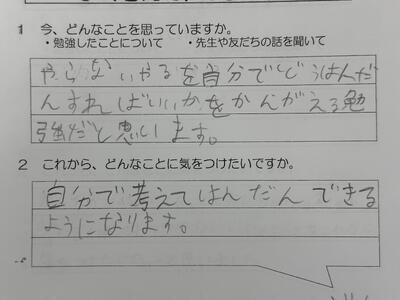 1 今、どんなことを思っていますか。
・勉強したことについて ・先生や友だちの話を聞いて
やらないやるを自分でどうはんだ
んすればいいかをかんがえる勉
強だと思います。
2 これから、どんなことに気をつけたいですか。
自分で考えてはんだんできる
ようになります。